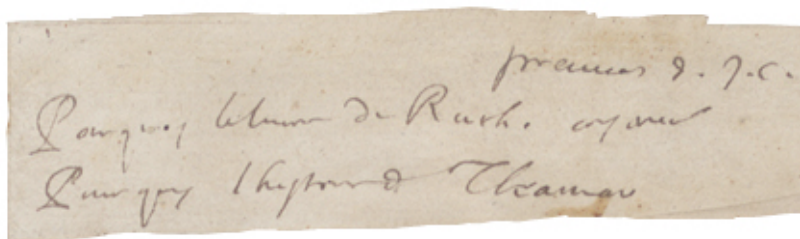 preuves d. J.C.
Pourquoy lelivre de Ruth. conservé
Pourquoy lhistoire de Thamar